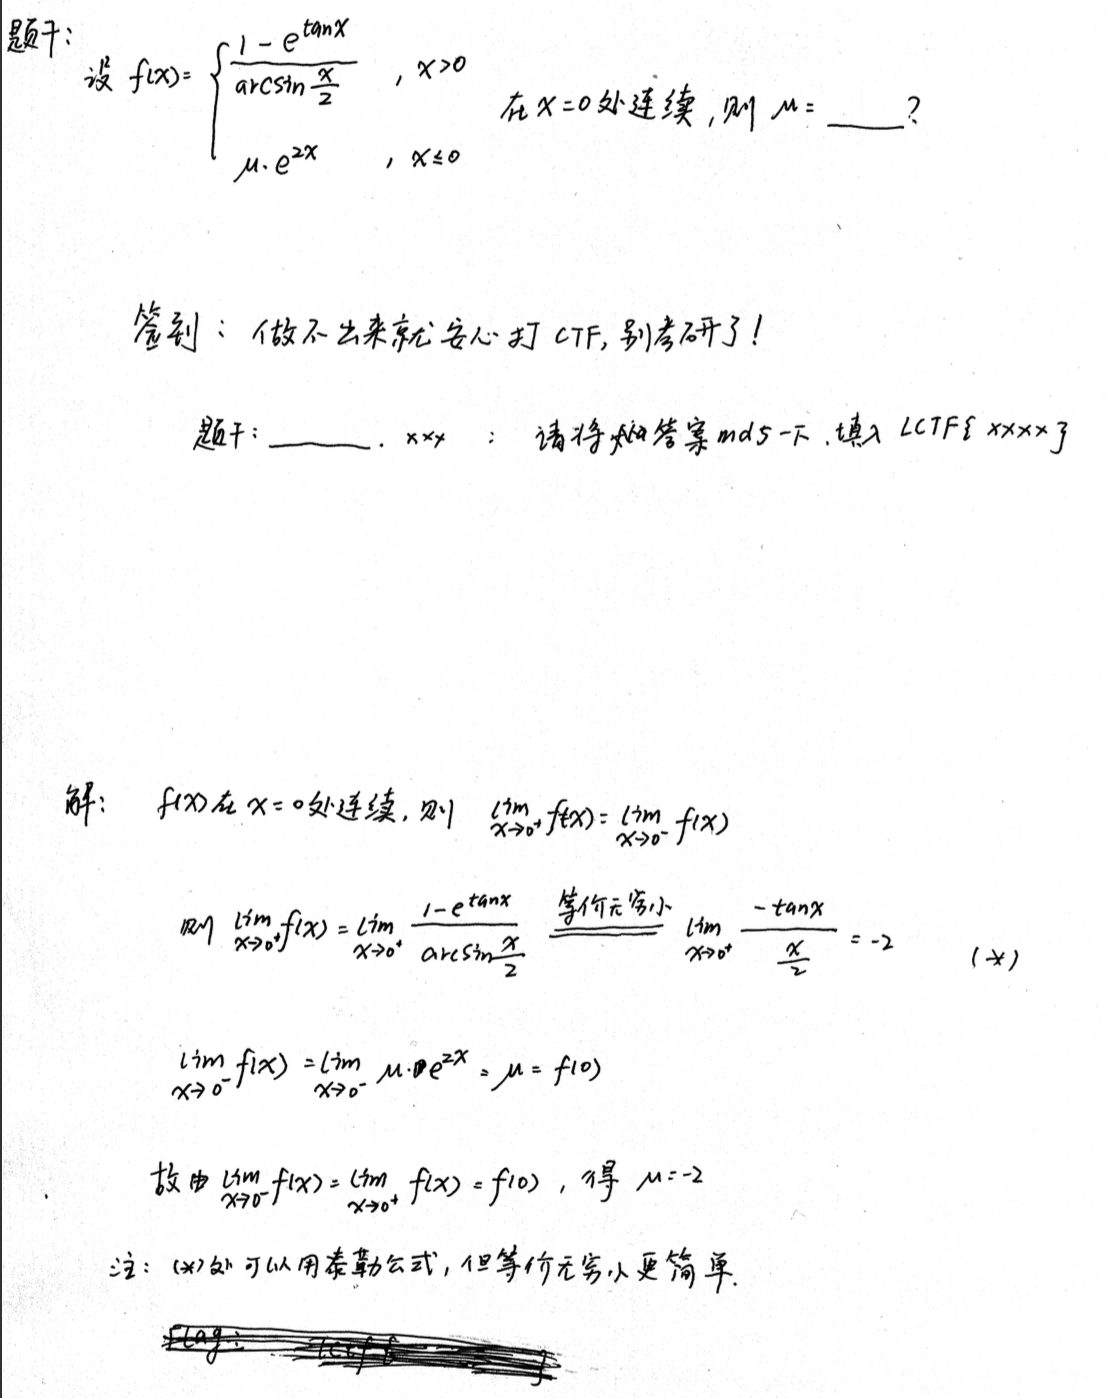 题干:
设 f(x)= { (1 - e^{tanx}) / (arcsin x/2) , x>0
μ·e^{2x} , x≤0
在 x=0 处连续, 则 μ= ____?
签到: 做不出来就安心打 CTF, 别考研了!
题干: ____ . xxx : 请将 答案 md5 一下, 填入 LCTF{ xxxx }
解: f(x) 在 x=0处连续, 则 lim_{x→0⁺} f(x) = lim_{x→0⁻} f(x)
则 lim_{x→0⁺} f(x) = lim_{x→0⁺} (1-e^{tanx}) / (arcsin x/2) 等价无穷小 lim_{x→0⁺} (-tanx) / (x/2) = -2 (*)
lim_{x→0⁻} f(x) = lim_{x→0⁻} μ·e^{2x} = μ = f(0)
故由 lim_{x→0⁻} f(x) = lim_{x→0⁺} f(x) = f(0), 得 μ=-2
注: (*)处可以用泰勒公式, 但等价无穷小更简单.
Flag: